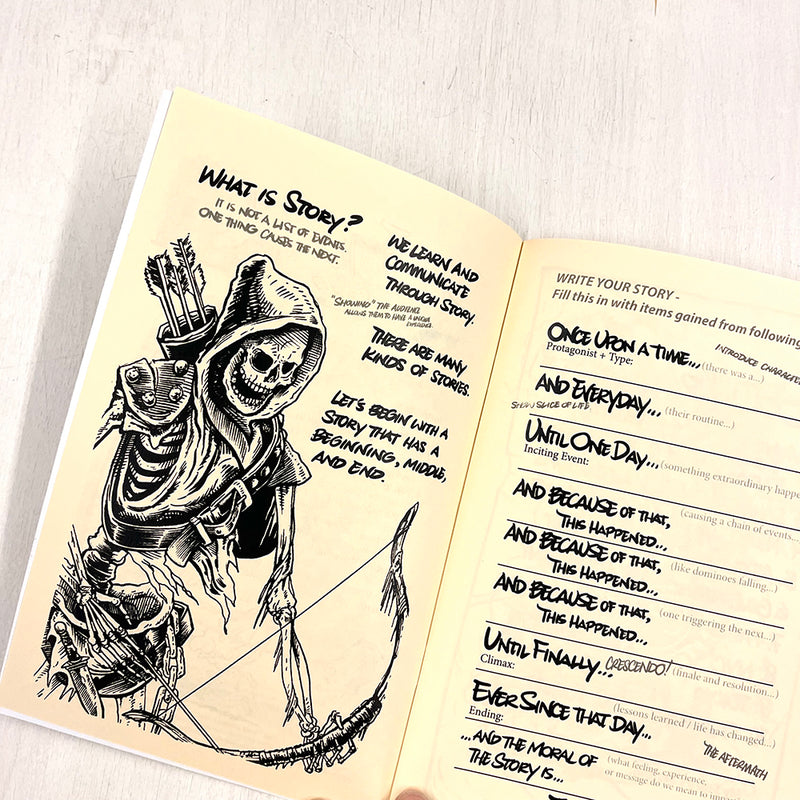 WHAT IS STORY?
IT IS NOT A LIST OF EVENTS.
ONE THING CAUSES THE NEXT.
WE LEARN AND
COMMUNICATE
THROUGH STORY.
"SHOWING" THE AUDIENCE
ALLOWS THEM TO HAVE A UNIQUE
EXPERIENCE.
THERE ARE MANY
KINDS OF STORIES.
LET'S BEGIN WITH A
STORY THAT HAS A
BEGINNING, MIDDLE,
AND END.
WRITE YOUR STORY -
Fill this in with items gained from following
INTRODUCE CHARACTER
ONCE UPON A TIME... (there was a...)
Protagonist + Type:
AND EVERYDAY... (their routine...)
SHOW SLICE OF LIFE
UNTIL ONE DAY... (something extraordinary happe
Inciting Event:
AND BECAUSE OF THAT, (causing a chain of events...
THIS HAPPENED...
AND BECAUSE OF THAT, (like dominoes falling...)
THIS HAPPENED...
AND BECAUSE OF THAT, (one triggering the next...)
THIS HAPPENED...
UNTIL FINALLY... CRESCENDO! (finale and resolution...)
Climax:
EVER SINCE THAT DAY... (lessons learned / life has changed...)
Ending:
THE AFTERMATH
...AND THE MORAL OF (what feeling, experience,
THE STORY IS... or message do we mean to